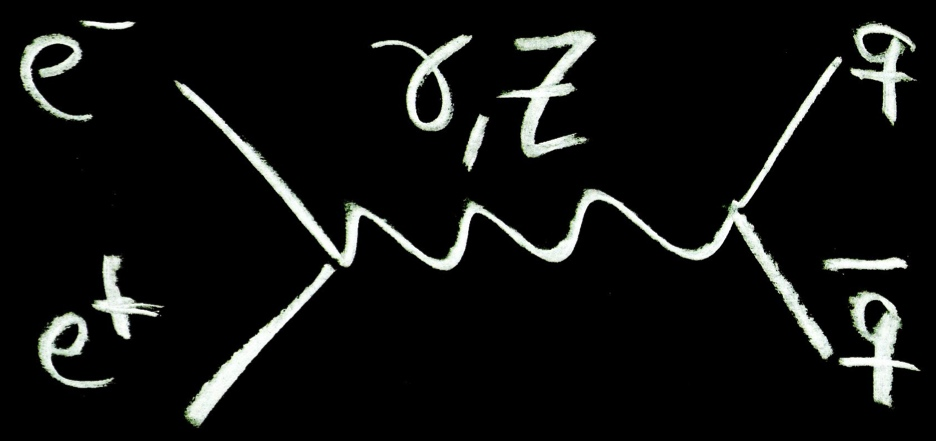 e⁻ γ,Z q
e⁺ q̅